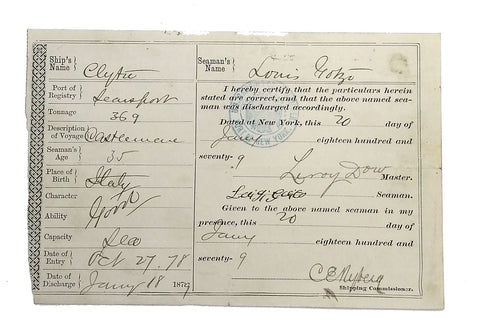 Ship's Name Clytie
Port of Registry Searsport
Tonnage 369
Description of Voyage
Seaman's Age 35
Place of Birth Italy
Character Good
Ability
Capacity Sea
Date of Entry Oct 27. 78
Date of Discharge Jany 18 1879
Seaman's Name Louis
I hereby certify that the particulars herein
stated are correct, and that the above named sea-
man was discharged accordingly.
Dated at New York, this 20 day of
Jany eighteen hundred and
seventy-9
Leroy Dow Master.
Seaman.
Given to the above named seaman in my
presence, this 20 day of
Jany eighteen hundred and
seventy-9
Shipping Commissioner.
NEW YORK